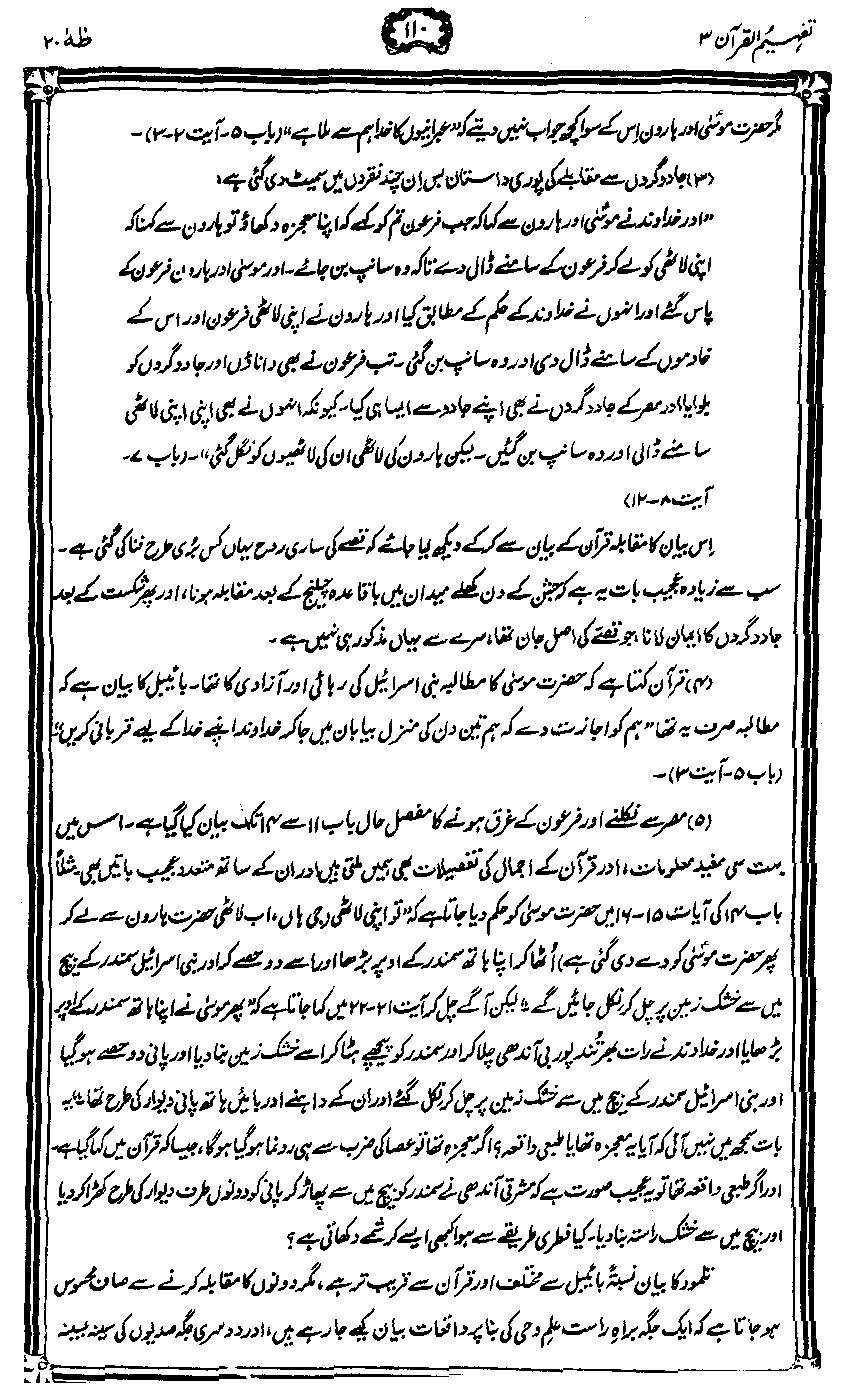 تفہیم القرآن ۳
۱۱۰
طٰہٰ ۲۰
مگر حضرت موسٰیؑ اور ہارون اِس کے سوا کچھ جواب نہیں دیتے کہ ”عبرانیوں کا خدا ہم سے ملا ہے“ (باب ۵ - آیت ۲-۳) -
(۳) جادوگروں سے مقابلے کی پوری داستان بس اِن چند فقروں میں سمیٹ دی گئی ہے:
”اور خداوند نے موسٰیؑ اور ہارون سے کہا کہ جب فرعون تم کو کہے کہ اپنا معجزہ دکھاؤ تو ہارون سے کہنا کہ
اپنی لاٹھی کو لے کر فرعون کے سامنے ڈال دے تاکہ وہ سانپ بن جائے۔ اور موسیٰ اور ہارون فرعون کے
پاس گئے اور انہوں نے خداوند کے حکم کے مطابق کیا اور ہارون نے اپنی لاٹھی فرعون اور اس کے
خادموں کے سامنے ڈال دی اور وہ سانپ بن گئی۔ تب فرعون نے بھی داناؤں اور جادوگروں کو
بلوایا اور مصر کے جادوگروں نے بھی اپنے جادو سے ایسا ہی کیا۔ کیونکہ انہوں نے بھی اپنی اپنی لاٹھی
سامنے ڈالی اور وہ سانپ بن گئیں۔ لیکن ہارون کی لاٹھی ان کی لاٹھیوں کو نگل گئی“۔ (باب ۷ -
آیت ۸-۱۲)
اِس بیان کا مقابلہ قرآن کے بیان سے کر کے دیکھ لیا جائے کہ قصے کی ساری روح یہاں کس بُری طرح فنا کی گئی ہے۔
سب سے زیادہ عجیب بات یہ ہے کہ جشن کے دن کھلے میدان میں باقاعدہ چیلنج کے بعد مقابلہ ہونا، اور پھر شکست کے بعد
جادوگروں کا ایمان لانا، جو قصے کی اصل جان تھا، سرے سے یہاں مذکور ہی نہیں ہے۔
(۴) قرآن کہتا ہے کہ حضرت موسیٰ کا مطالبہ بنی اسرائیل کی رہائی اور آزادی کا تھا۔ بائیبل کا بیان ہے کہ
مطالبہ صرف یہ تھا ”ہم کو اجازت دے کہ ہم تین دن کی منزل بیابان میں جا کر خداوند اپنے خدا کے لیے قربانی کریں“
(باب ۵ - آیت ۳) -
(۵) مصر سے نکلنے اور فرعون کے غرق ہونے کا مفصل حال باب ۱۱ سے ۱۴ تک بیان کیا گیا ہے۔ اس میں
بہت سی مفید معلومات، اور قرآن کے اجمال کی تفصیلات بھی ہمیں ملتی ہیں اور ان کے ساتھ متعدد عجیب باتیں بھی مثلاً
باب ۱۴ کی آیات ۱۵-۱۶ میں حضرت موسیٰ کو حکم دیا جاتا ہے کہ ”تو اپنی لاٹھی (جی ہاں، اب لاٹھی حضرت ہارون سے لے کر
پھر حضرت موسٰیؑ کو دے دی گئی ہے) اُٹھا کر اپنا ہاتھ سمندر کے اوپر بڑھا اور اسے دو حصے کر اور بنی اسرائیل سمندر کے بیچ
میں سے خشک زمین پر چل کر نکل جائیں گے“ لیکن آگے چل کر آیت ۲۱-۲۲ میں کہا جاتا ہے کہ ”پھر موسیٰ نے اپنا ہاتھ سمندر کے اوپر
بڑھایا اور خداوند نے رات بھر تُند پوربی آندھی چلا کر اور سمندر کو پیچھے ہٹا کر اسے خشک زمین بنا دیا اور پانی دو حصے ہو گیا
اور بنی اسرائیل سمندر کے بیچ میں سے خشک زمین پر چل کر نکل گئے اور ان کے داہنے اور بائیں ہاتھ پانی دیوار کی طرح تھا“ یہ
بات سمجھ میں نہیں آئی کہ آیا یہ معجزہ تھا یا طبعی واقعہ؟ اگر معجزہ تھا تو عصا کی ضرب سے ہی رونما ہو گیا ہوگا، جیسا کہ قرآن میں کہا گیا ہے۔
اور اگر طبعی واقعہ تھا تو یہ عجیب صورت ہے کہ مشرقی آندھی نے سمندر کو بیچ میں سے پھاڑ کر پانی کو دونوں طرف دیوار کی طرح کھڑا کر دیا
اور بیچ میں سے خشک راستہ بنا دیا۔ کیا فطری طریقے سے ہوا کبھی ایسے کرشمے دکھاتی ہے؟
تلمود کا بیان نسبۃً بائیبل سے مختلف اور قرآن سے قریب تر ہے، مگر دونوں کا مقابلہ کرنے سے صاف محسوس
ہو جاتا ہے کہ ایک جگہ براہِ راست علمِ وحی کی بنا پر واقعات بیان کیے جا رہے ہیں، اور دوسری جگہ صدیوں کی سینہ بسینہ